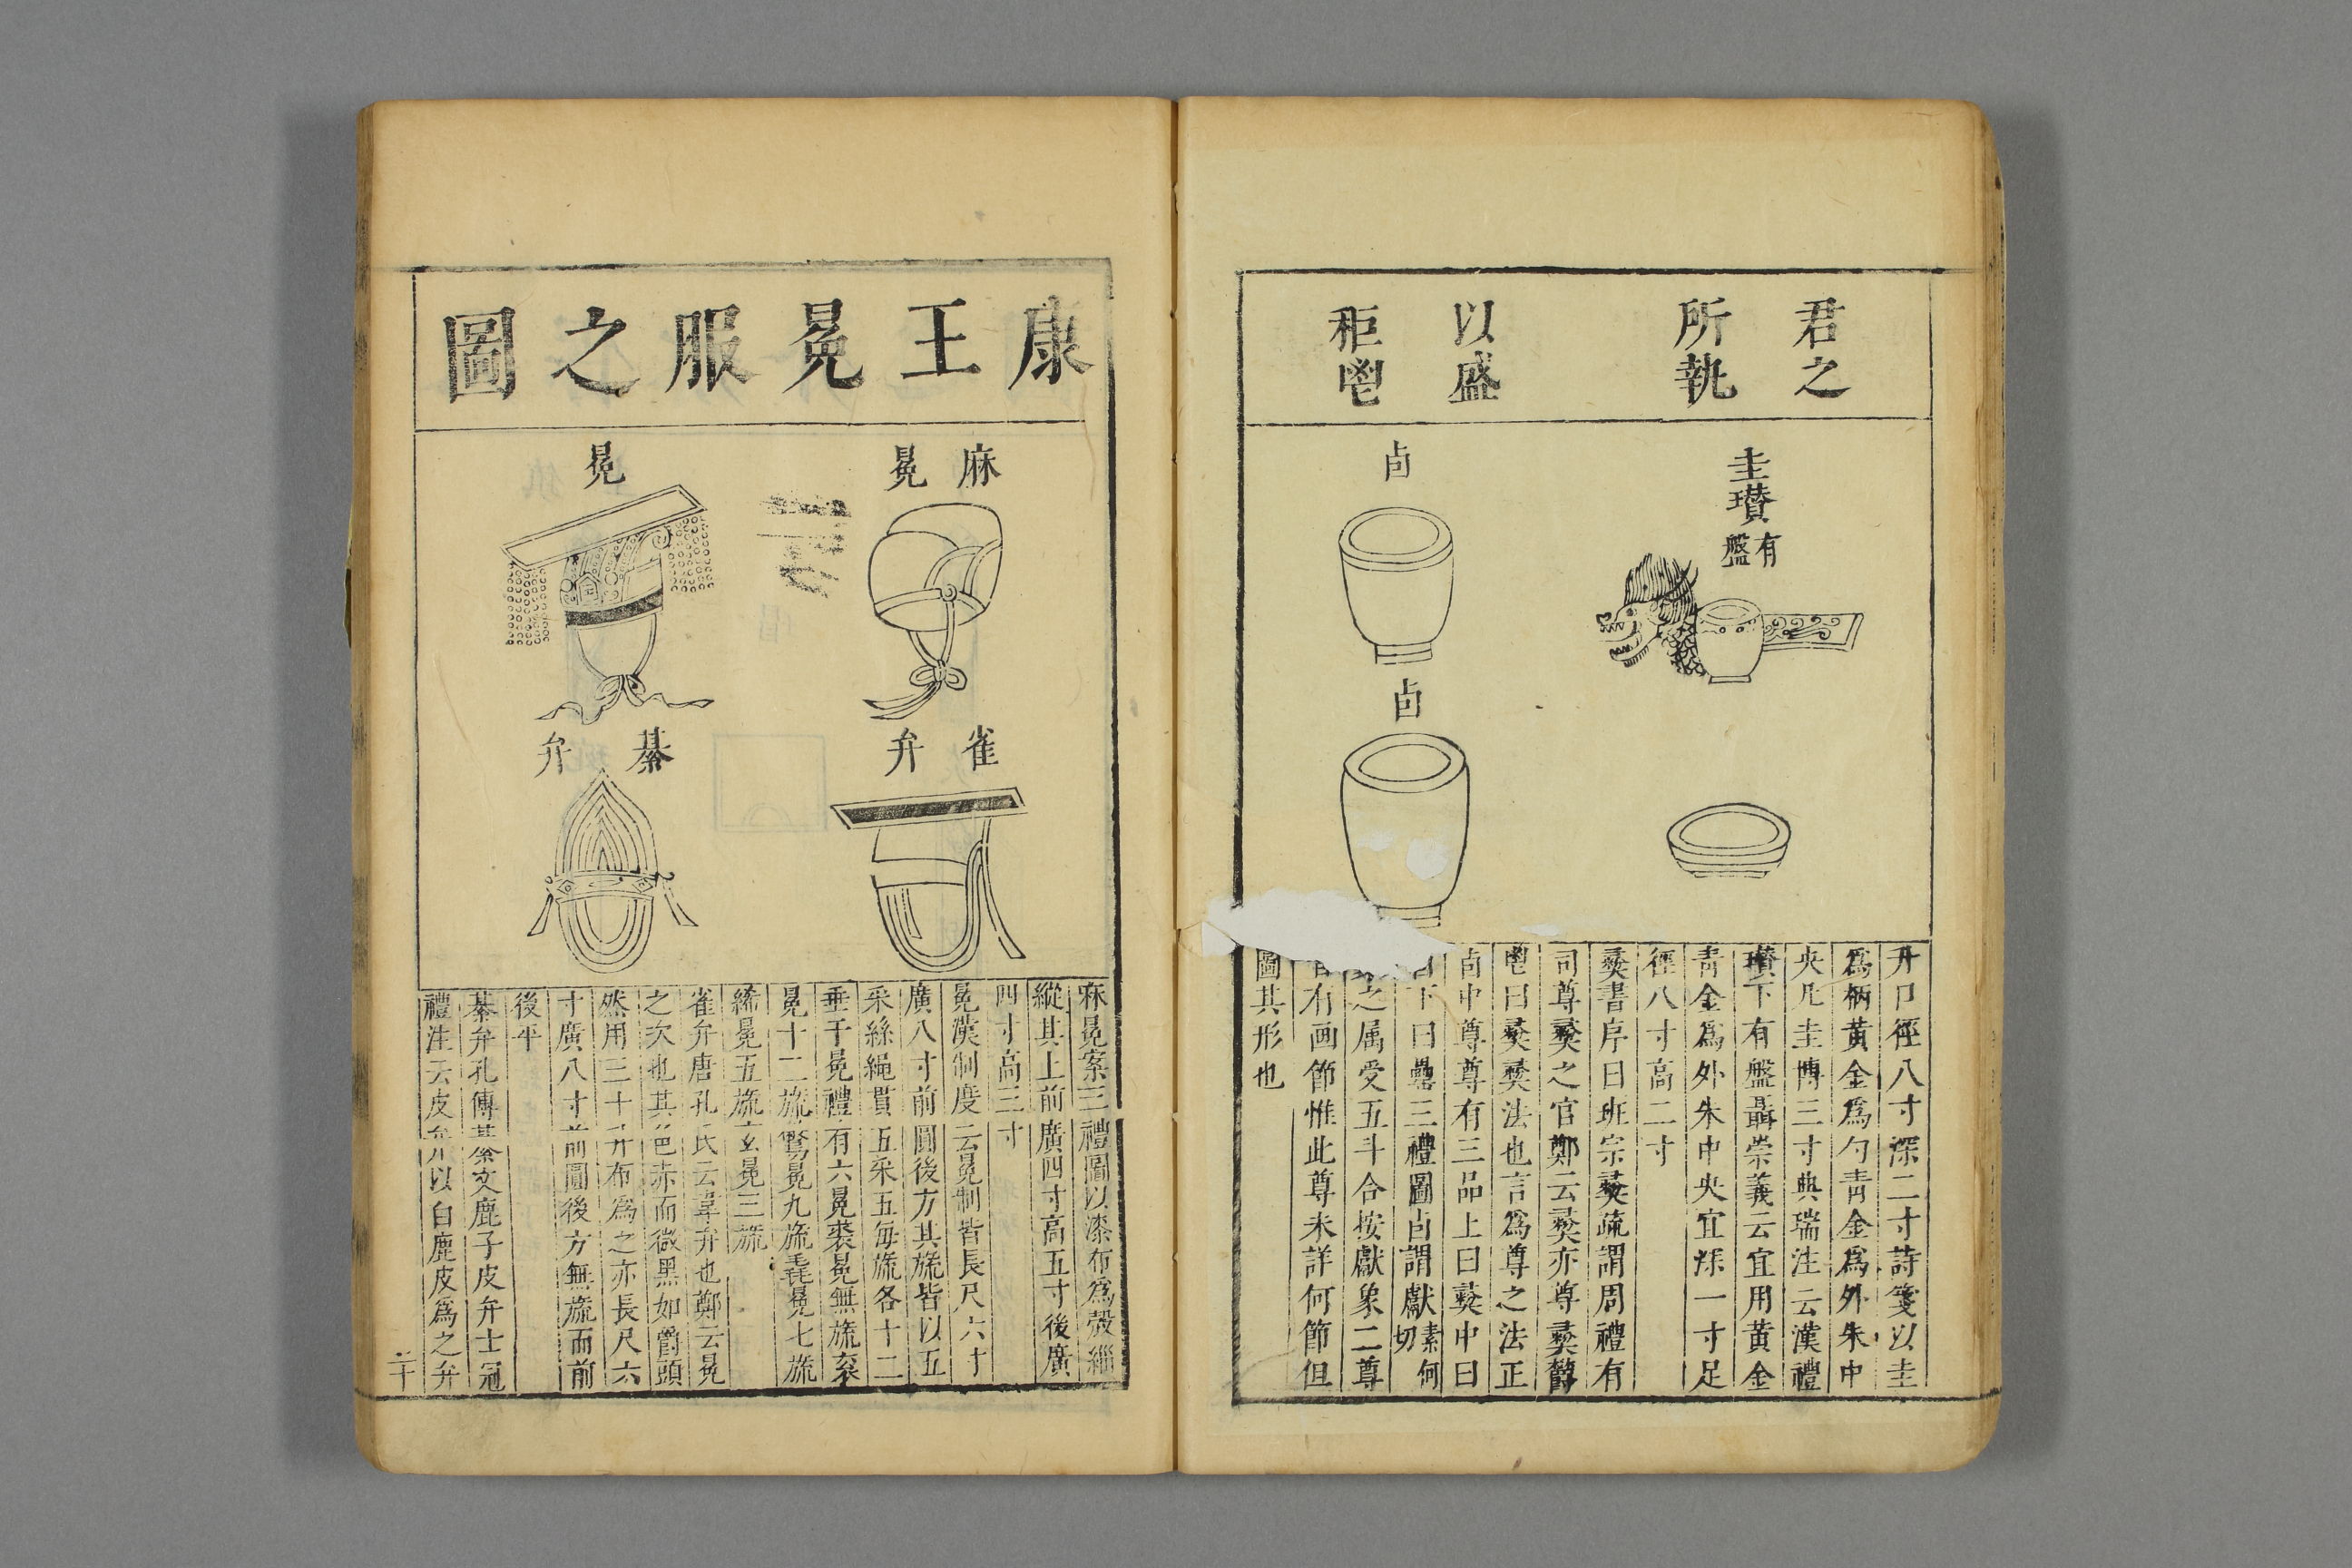 君之
所執
以盛
秬鬯
圭瓚
有
盤
卣
卣
升口徑八寸深二寸詩箋以圭
爲柄黃金爲勺青金爲外朱中
央凡圭博三寸典瑞注云漢禮
瓚下有盤聶崇義云宜用黃金
青金爲外朱中央宜深一寸足
徑八寸高二寸
彝書序曰班宗彝疏謂周禮有
司尊彝之官鄭云彝亦尊彝欝
鬯曰彝彝法也言爲尊之法正
卣中尊尊有三品上曰彝中曰
下曰罍三禮圖卣謂獻素何切
之属受五斗合按獻象二尊
有画節惟此尊未詳何節但
圖其形也
康王冕服之圖
麻冕
冕
雀弁
綦弁
麻冕案三禮圖以漆布爲殻緇
縱其上前廣四寸高五寸後廣
四寸高三寸
冕漢制度云冕制皆長尺六寸
廣八寸前圓後方其旒皆以五
采絲繩貫五采五每旒各十二
垂于冕禮有六冕裘冕無旒衮
冕十二旒鷩冕九旒毳冕七旒
絺冕五旒玄冕三旒
雀弁唐孔氏云韋弁也鄭云冕
之次也其色赤而微黑如爵頭
然用三十升布爲之亦長尺六
寸廣八寸前圓後方無旒而前
後平
綦弁孔傳綦文鹿子皮弁士冠
禮注云皮弁以白鹿皮爲之弁
二十